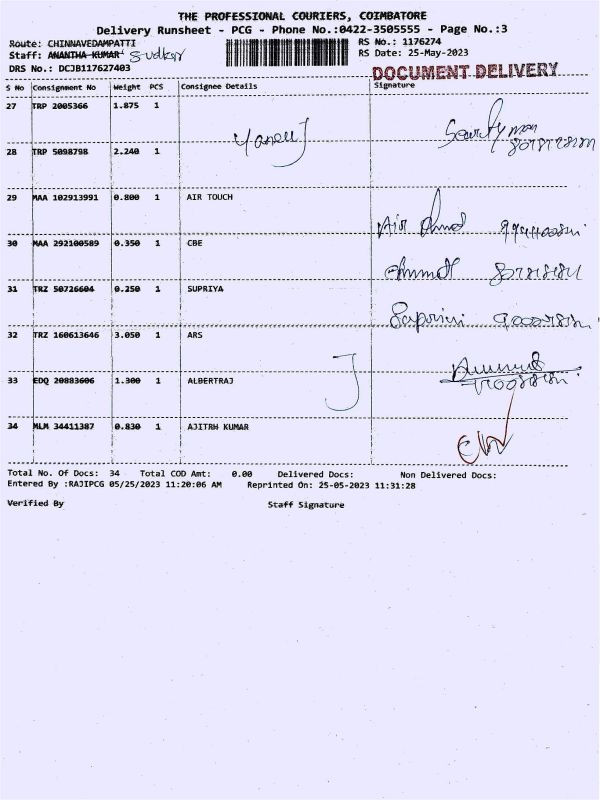 THE PROFESSIONAL COURIERS, COIMBATORE
Delivery Runsheet - PCG - Phone No.:0422-3505555 - Page No.:3
Route: CHINNAVEDAMPATTI RS No.: 1176274
Staff: ANANTHA KUMAR RS Date: 25-May-2023
DRS No.: DCJB117627403 DOCUMENT DELIVERY
S No Consignment No Weight PCS Consignee Details Signature
27 TRP 2005366 1.875 1
28 TRP 5098798 2.240 1
29 MAA 102913991 0.800 1 AIR TOUCH
30 MAA 292100589 0.350 1 CBE
31 TRZ 50726604 0.250 1 SUPRIYA
32 TRZ 160613646 3.050 1 ARS
33 EDQ 20883606 1.300 1 ALBERTRAJ
34 MLM 34411387 0.830 1 AJITRH KUMAR
Total No. Of Docs: 34 Total COD Amt: 0.00 Delivered Docs: Non Delivered Docs:
Entered By :RAJIPCG 05/25/2023 11:20:06 AM Reprinted On: 25-05-2023 11:31:28
Verified By Staff Signature